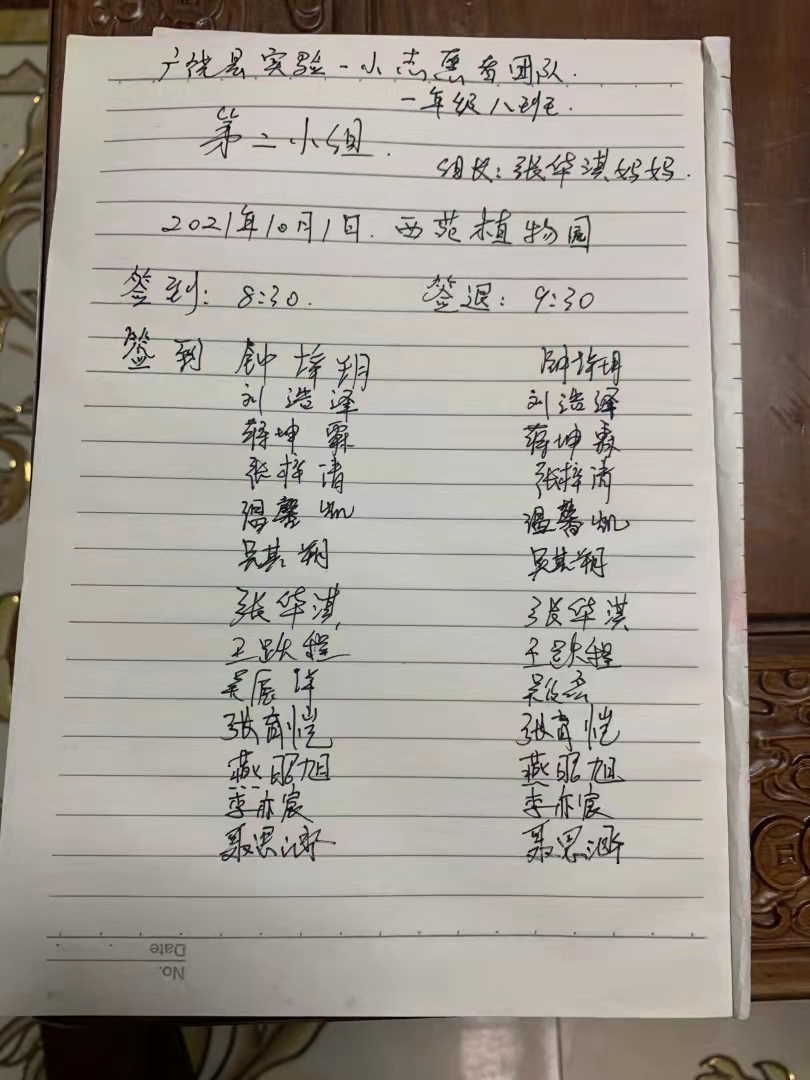 广饶县实验一小志愿者团队.
一年级八班.
第二小组.
组长:张华淇妈妈.
2021年10月1日. 西苑植物园
签到: 8:30. 签退: 9:30
签到 钟梓玥 钟梓玥
刘浩泽 刘浩泽
蒋坤霖 蒋坤霖
张梓清 张梓清
温馨凯 温馨凯
吴其朔 吴其朔
张华淇 张华淇
王跃程 王跃程
吴辰 吴
张育恺 张育恺
燕昭旭 燕昭旭
李亦宸 李亦宸
聂思涵 聂思涵
No.
Date